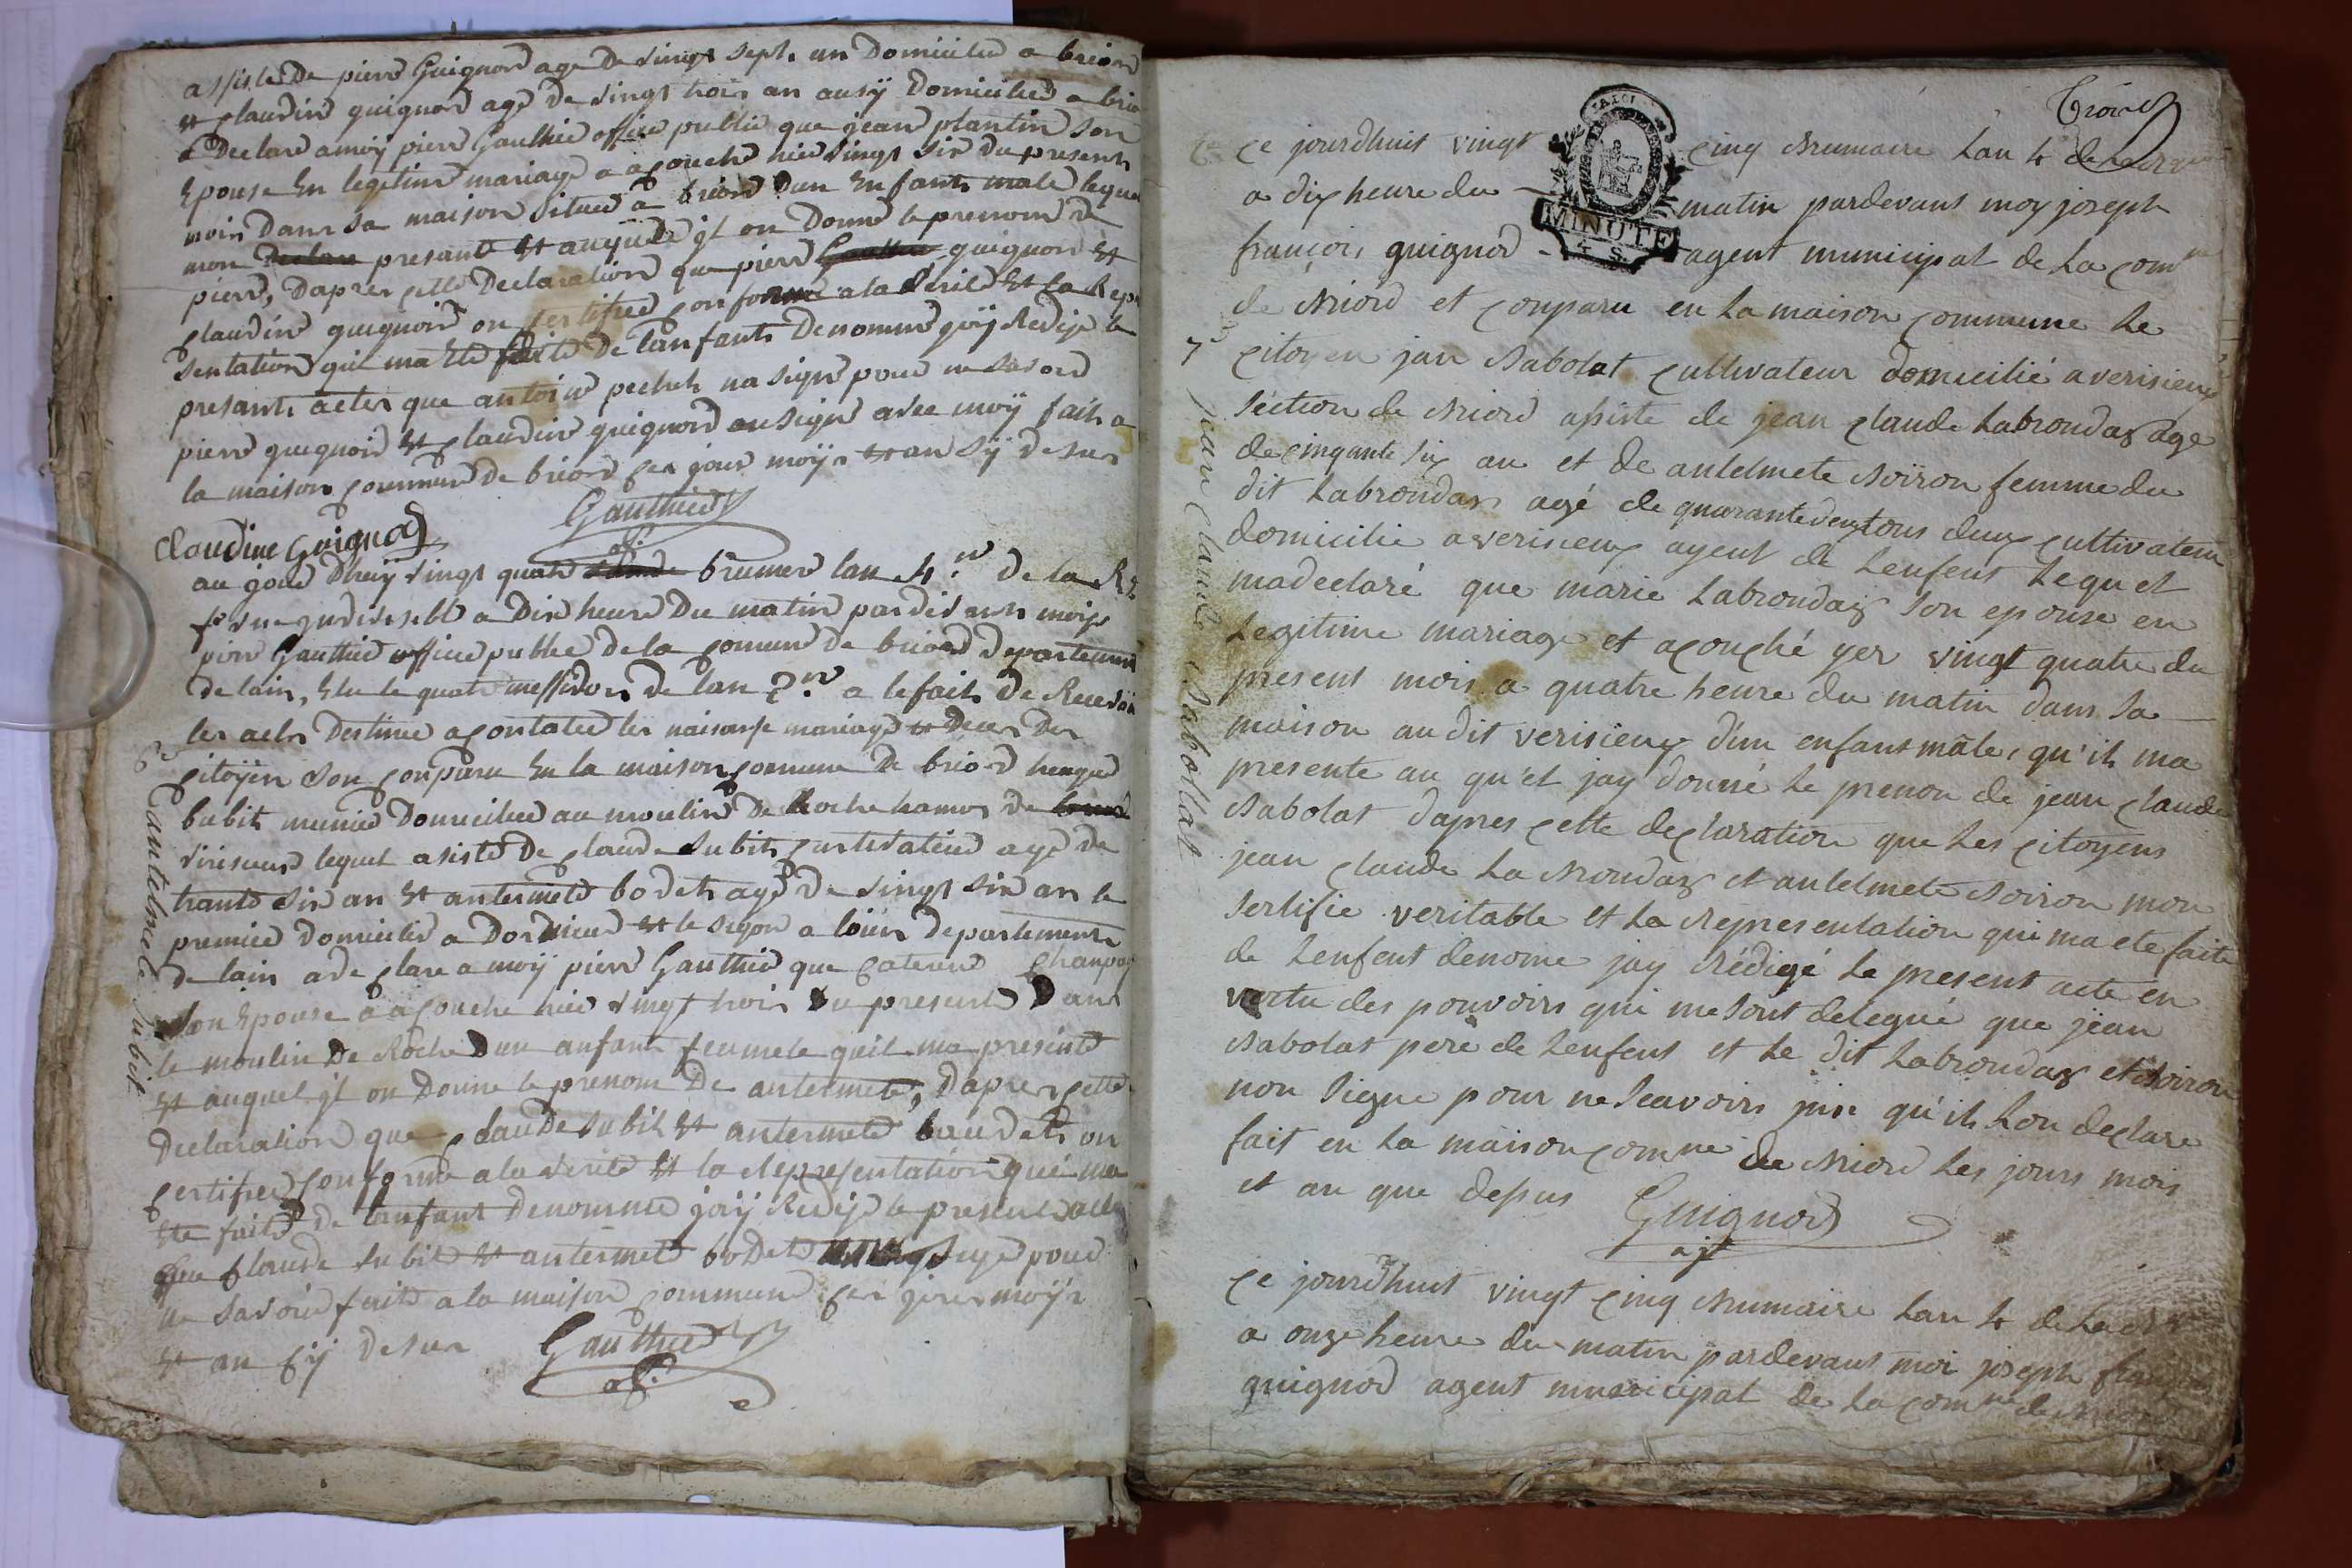 assisté De pierre Guignod age De vingt sept an Domicilie a briord
et claudine guignod age De vingt trois an ausÿ Domicilied a brio
a Declare a moÿ pierre Gauthié officié public que jean plantin son
Epouse En legetime mariage a acouche hier vingt six du present
mois Dans sa maison situé a briord Dun Enfants male leque
mon presanté Et auquele jl on Donné le prenom de
pierre, Dapres cette Declaration que pierre guignod Et
claudine guignod on certified conforme a la verite Et la Repr
sentation qui ma Ete faite De lanfants Denommé jaÿ Redije le
presants actes que antoine pecheh na signe pour ne savoir
pierre guignod Et claudine guignod on signe avec moÿ fait a
la maison commune de briord ces jour moÿs et an sÿ desus
Gauthied
of.
Claudine Guignod
au jour Dhuÿ vingt quatre brumer lan 4.me De la R
fse une gndivisible a Dix heure Du matin pardevants moÿ
pierre Gauthié officié publee De la comune De briord Departement
de lain, Elu le quatre messidor de lan 3.me a lefaits De Recevoir
les actes Destinée a contatée les naisanse mariage et Deces Des
citoÿen son conparu En la maison commune De briord
bubit munied Domicilied au moulin De Roche De
virisieux lequel asisté De claude Subit curtivateur age De
trante six an Et antermete bodets age De vingt six an le
premier Domicilié a Et le segon a Departements
De lain a de clare a moÿ pierre Gauthié que caterine
son Epouse a acouche hier vingt trois Du present Dans
le moulin De Roche Dun anfant femele quil ma presinté
Et auquel jl on Donne le prenom De antermete, Dapres cette
Declaration que claude Subit Et antermete baudets on
certified conforme a la verite Et la Representation qui ma
Ete faite De lanfant Denommé jaÿ Redije le present acte
que claude Subit Et antermete bodets pour
ne savoir faite a la maison commune ces jour moÿs
Et an cÿ desus Gauthied
of.
6e antelmete subit
Troix
Ce jourdhuit vingt cinq Brumaire Lan 4 de
a dix heure du matin pardevant moy joseph
françois guignod agent municipal de La comne
de Briord et conparu en La maison commune Le
citoyen jan Sabolat cultivateur domicilié a verisieux
Section de Briord asiste de jean claude Labrondaz age
de cinqante six an et de antelmete Boiron femme du
dit Labrondaz agé de quarantedeux tous deux cultivateur
domicilié a verisieux ayent de Lenfent Lequel
madeclaré que marie Labrondaz son epouse en
Legitime mariage et acouché yer vingt quatre du
present mois a quatre heure du matin dans sa
maison audit verisieux d'un enfant mâle, qu'ils ma
presente au qu'el jay donné Le prenon de jean claude
Sabolat dapres cette declaration que Les citoyens
jean claude La Brondaz et antelmete Boiron mon
sertifie veritable et La Representation qui ma ete faite
de Lenfent denomé jay Rédigé Le present acte en
vertu des pouvoirs qui me sont delegué que jean
Sabolat père de Lenfent et Le dit Labrondaz et Boiron
non signe pour ne scavoirs qu'ils Lon declare
fait en La maison comne de Briord Les jours mois
et an que dessus Guignod
agt
7e jean claude Sabollat
Ce jourdhuit vingt cinq Brumaire Lan 4 de La
a onze heure du matin pardevant moi joseph
guignod agent municipal de La comne de
MINUTE
4 S.